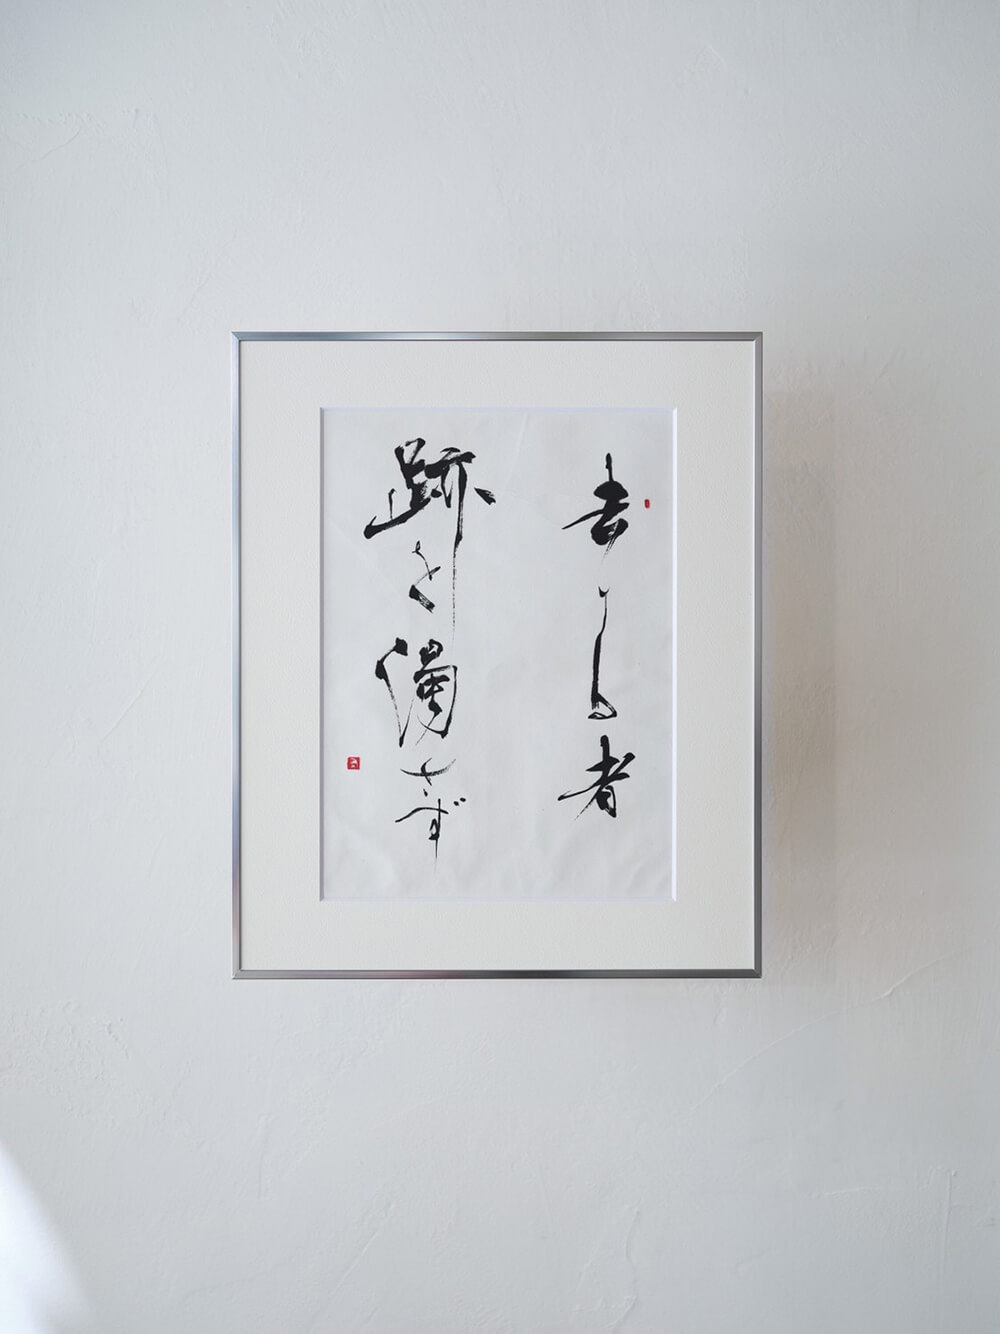 去る者
跡を濁さず